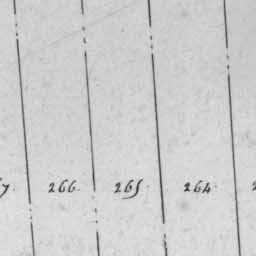 266 265 264